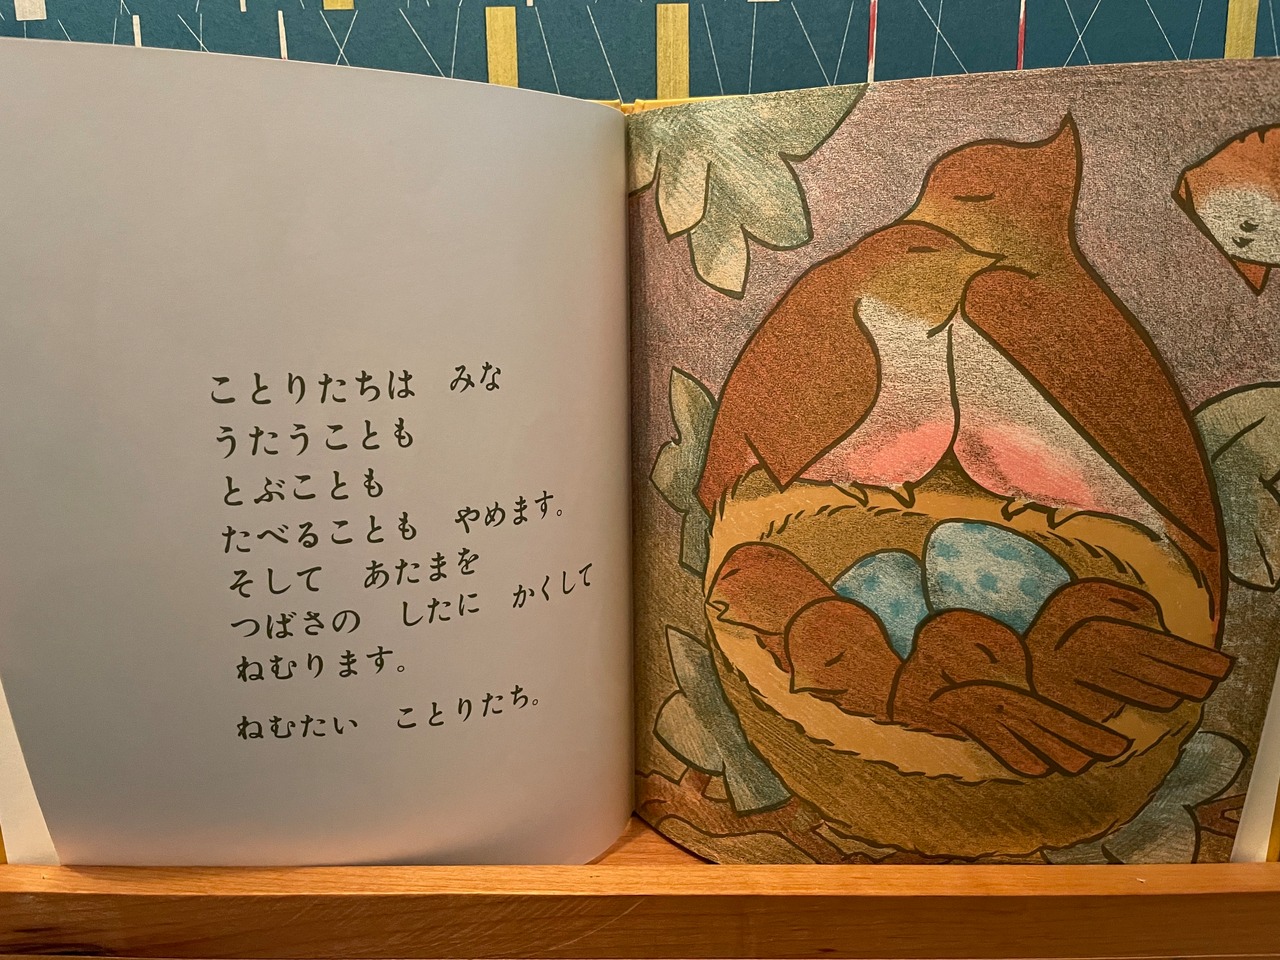 ことりたちは　みな
うたうことも
とぶことも
たべることも　やめます。
そして　あたまを
つばさの　したに　かくして
ねむります。
ねむたい　ことりたち。